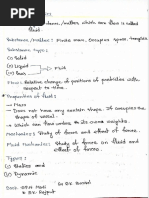 substances/matter which can flow is called
fluid
Substance/Matter: Finite mass, Occupies space, tangible
Substance types:
(i) Solid
(ii) Liquid
(iii) Gas
Fluid
Flow: Relative change of positions of particles with
respect to time.
Properties of fluid:
→ Mass
→ Does not have any certain shape. It occupies the
shape of vessel.
→ Which can flow under its own weights.
Mechanics: Study of force and effect of force.
Fluid Mechanics: Study of fluid and effect of
force.
Types:
(1) Statics
(2) Dynamic
Book - 
R.K Bansal
R.K Rajput